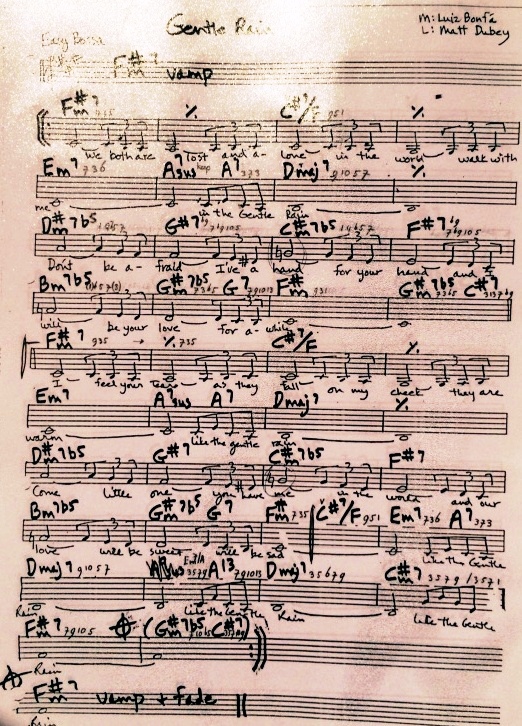 Gentle Rain
M: Luiz Bonfá
L: Matt Dubey
Easy Bossa
F#m7 vamp
F#m7 ٪ C#7/F 951 ٪
we both are lost and a- lone in the world walk with
Em7 736 A7sus A7 373 Dmaj7 91057 ٪
me in the Gentle Rain
D#m7b5 G#7b9 C#m7b5 F#7b9
Don't be a- fraid I've a hand for your hand and I
Bm7b5 G#m7b5 7365 G7 F#m7 931 G#m7b5 7365 C#7
will be your love for a- while
F#m7 935 → ٪ 735 C#7/F ٪
I feel your tears as they fall on my cheek they are
Em7 A7sus A7 Dmaj7 ٪
warm like the gentle rain
D#m7b5 G#7 C#m7b5 F#7
Come little one you have me in the world and our
Bm7b5 G#m7b5 G7 F#m7 735 C#7/F 951 Em7 736 A7 373
love will be sweet will be sad like the Gentle
Dmaj7 91057 Em7/A 3579 A13 Dmaj7 35679 C#7 3579/3571
Rain like the Gentle Rain like the Gentle
F#m7 79105 (G#m7b5 C#7)
Rain
F#m7 vamp + fade
Rain